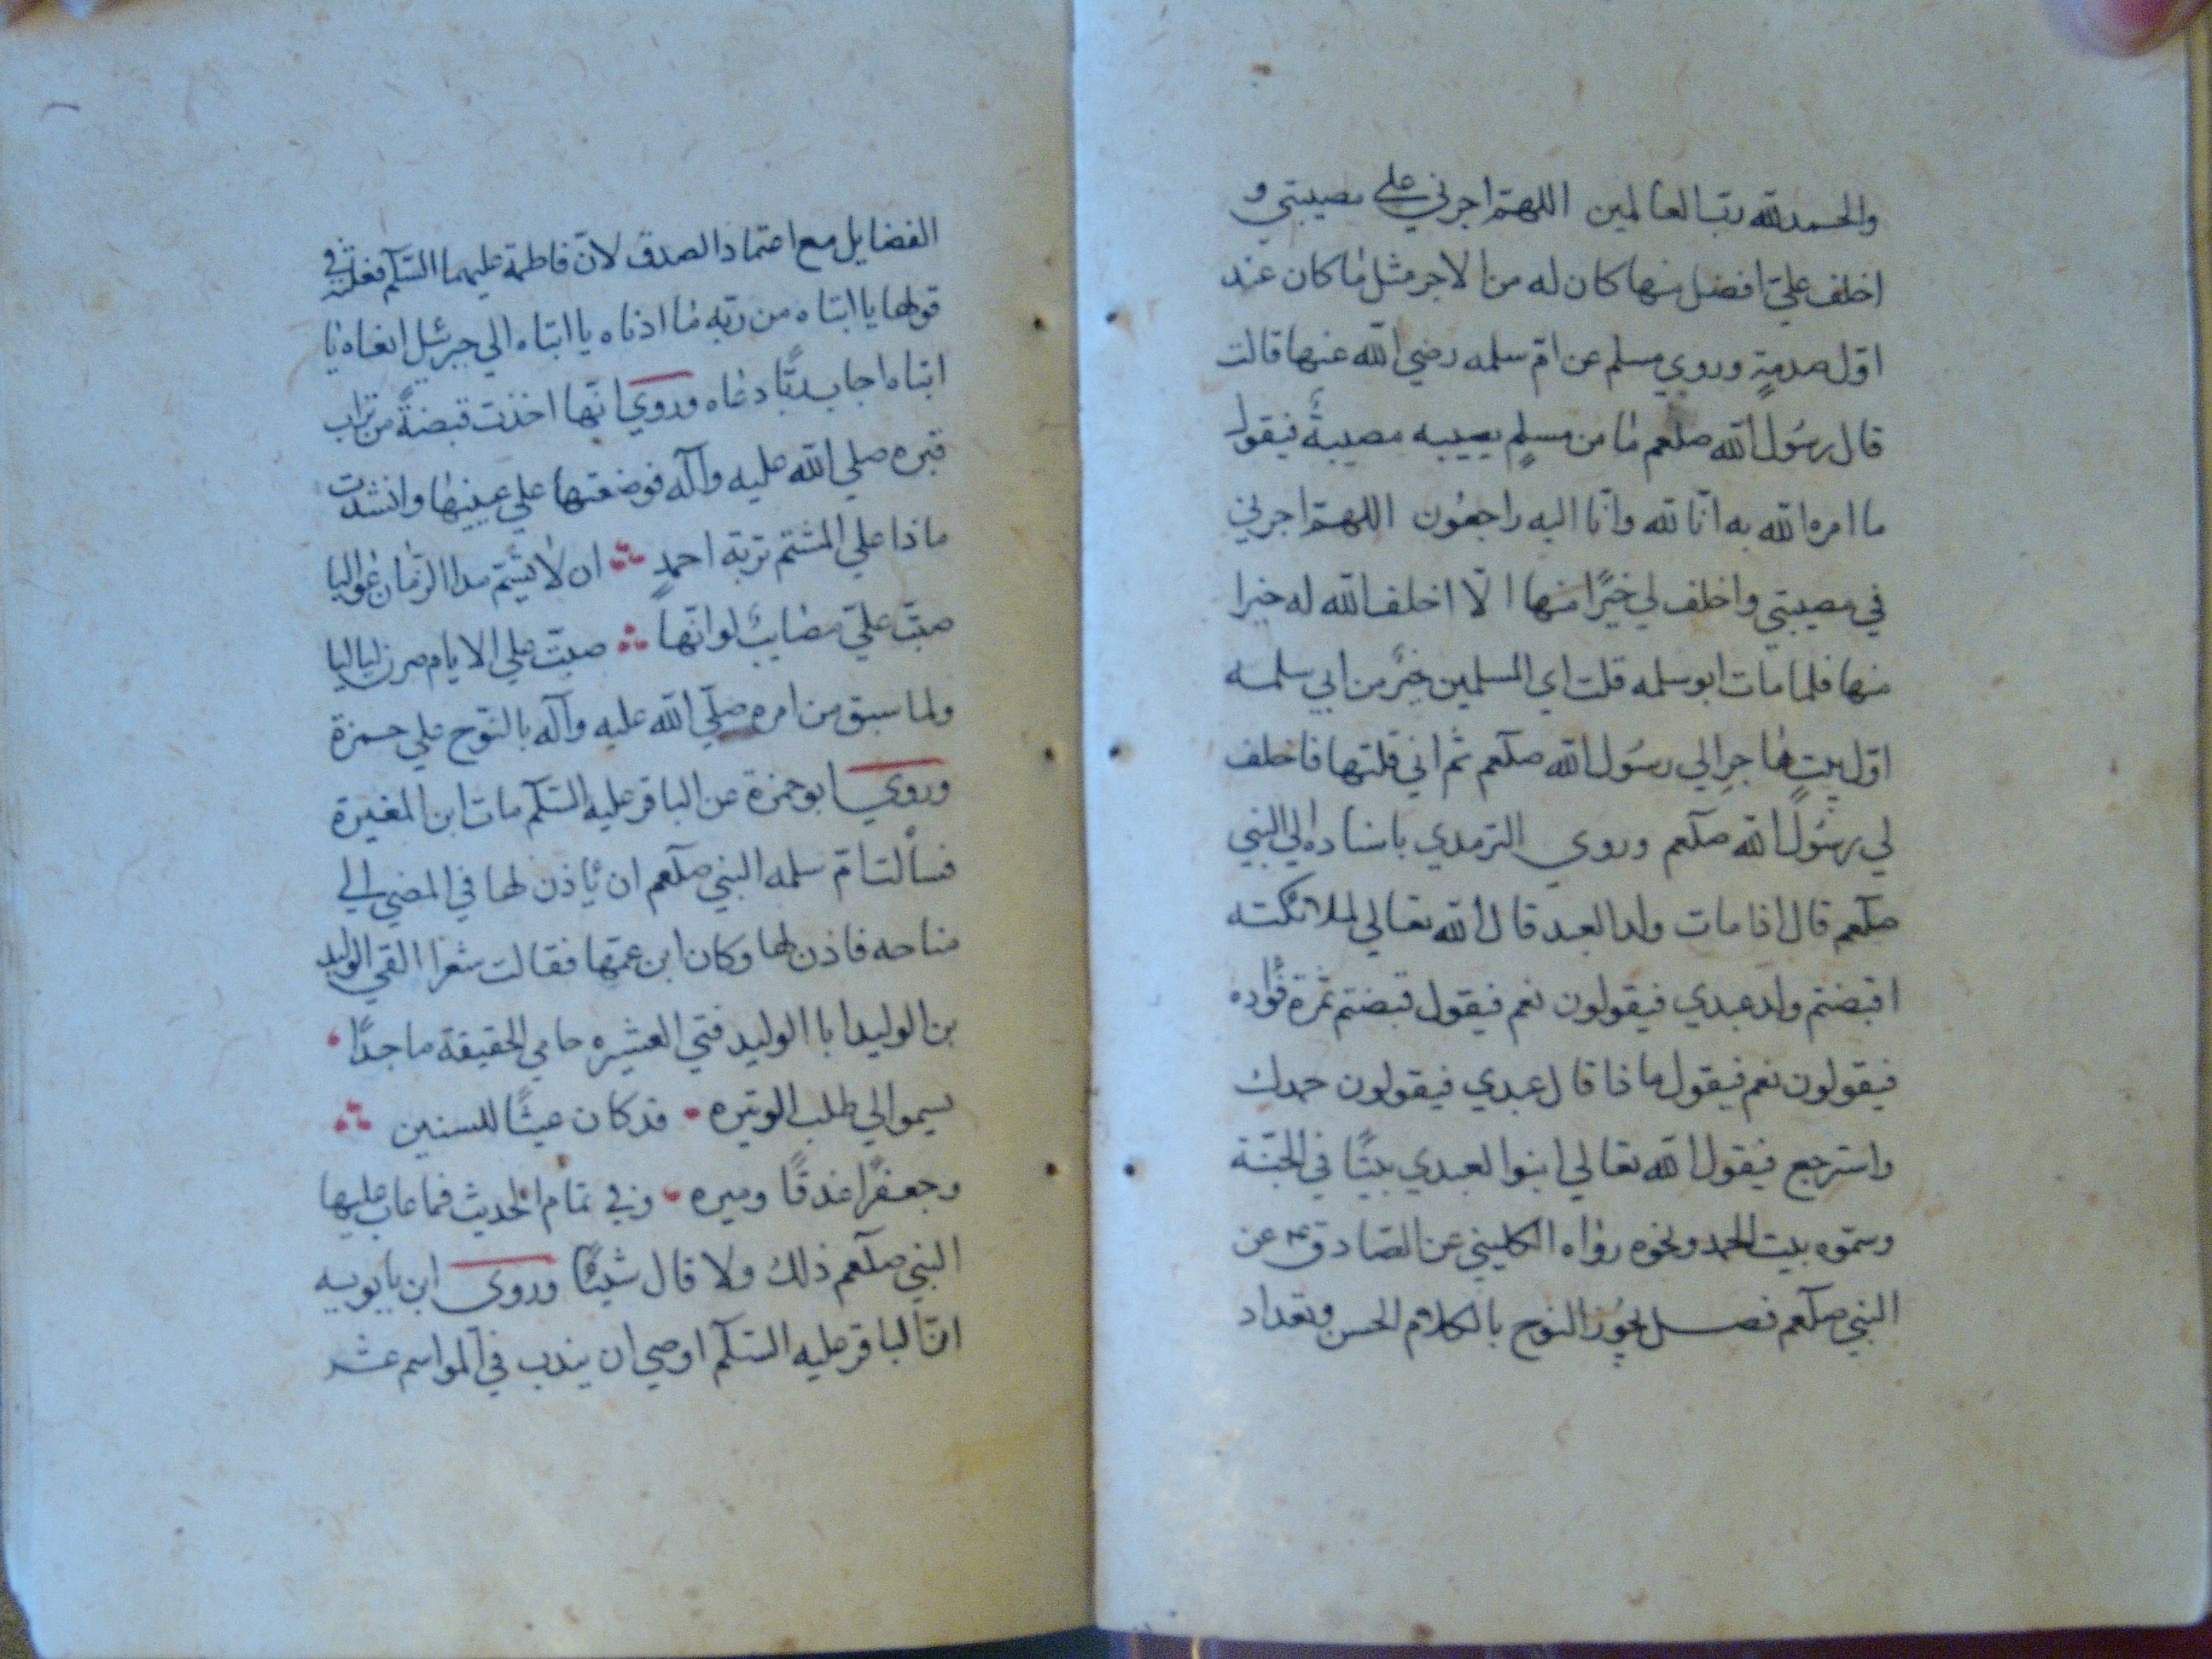 والحمد لله رب العالمين اللهم اجرني على مصيبتي و
اخلف علي افضل منها كان له من الاجر مثل ما كان عند
اول صدمة وروي مسلم عن ام سلمه رضي الله عنها قالت
قال رسول الله صلعم ما من مسلم يصيبه مصيبة فيقول
ما امره الله به انا لله وانا اليه راجعون اللهم اجرني
في مصيبتي واخلف لي خيرًا منها الا اخلف الله له خيرا
منها فلما مات ابو سلمه قلت اي المسلمين خير من ابي سلمه
اول بيت هاجر الي رسول الله صلعم ثم اني قلتها فاخلف
لي رسول الله صلعم وروي الترمدي باسناده الي النبي
صلعم قال اذا مات ولد العبد قال الله تعالي لملائكته
اقبضتم ولد عبدي فيقولون نعم فيقول قبضتم ثمرة فؤاده
فيقولون نعم فيقول ماذا قال عبدي فيقولون حمدك
واسترجع فيقول الله تعالي ابنوا لعبدي بيتًا في الجنة
وسموه بيت الحمد ونحوه رواه الكليني عن الصادق ع عن
النبي صلعم فصل يجوز النوح بالكلام الحسن وتعداد
الفضايل مع اعتماد الصدق لان فاطمة عليها السلم فعلته في
قولها يا ابتاه من ربه ما ادناه يا ابتاه الي جبرئيل انعاه يا
ابتاه اجاب ربًا دعاه وروي انها اخذت قبضةً من تراب
قبره صلي الله عليه وآله فوضعتها علي عينيها وانشدت
ماذا علي المشتم تربة احمدٍ ان لا يشم مدا الزمان غواليا
صبت علي مصايب لو انها صبت علي الايام صرن لياليا
ولما سبق من امره صلي الله عليه وآله بالنوح علي حمزة
وروي ابو حمزة عن الباقر عليه السلم مات ابن المغيرة
فسألت ام سلمه النبي صلعم ان يأذن لها في المضي الي
مناحه فاذن لها وكان ابن عمها فقالت شعرا القي الوليد
بن الوليد ابا الوليد فتي العشيره حامي الحقيقة ماجدًا
يسموا الي طلب الوتيره قد كان غيثًا للسنين
وجعفرًا غدقًا وميره وفي تمام الحديث فما عاب عليها
النبي صلعم ذلك ولا قال شيئًا وروي ابن بابويه
ان الباقر عليه السلم اوصي ان يندب في المواسم عشر